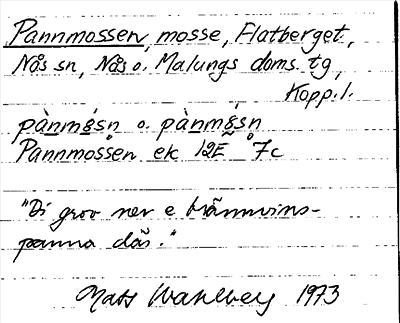 Pannmossen, mosse, Flatberget,
Nås sn, Nås o. Malungs doms. tg,
Kopp. l.
pànmósn o. pànmósn
Pannmossen ek 12E 7c
"Di grov ner e brännvins-
panna där."
Mats Wahlberg 1973